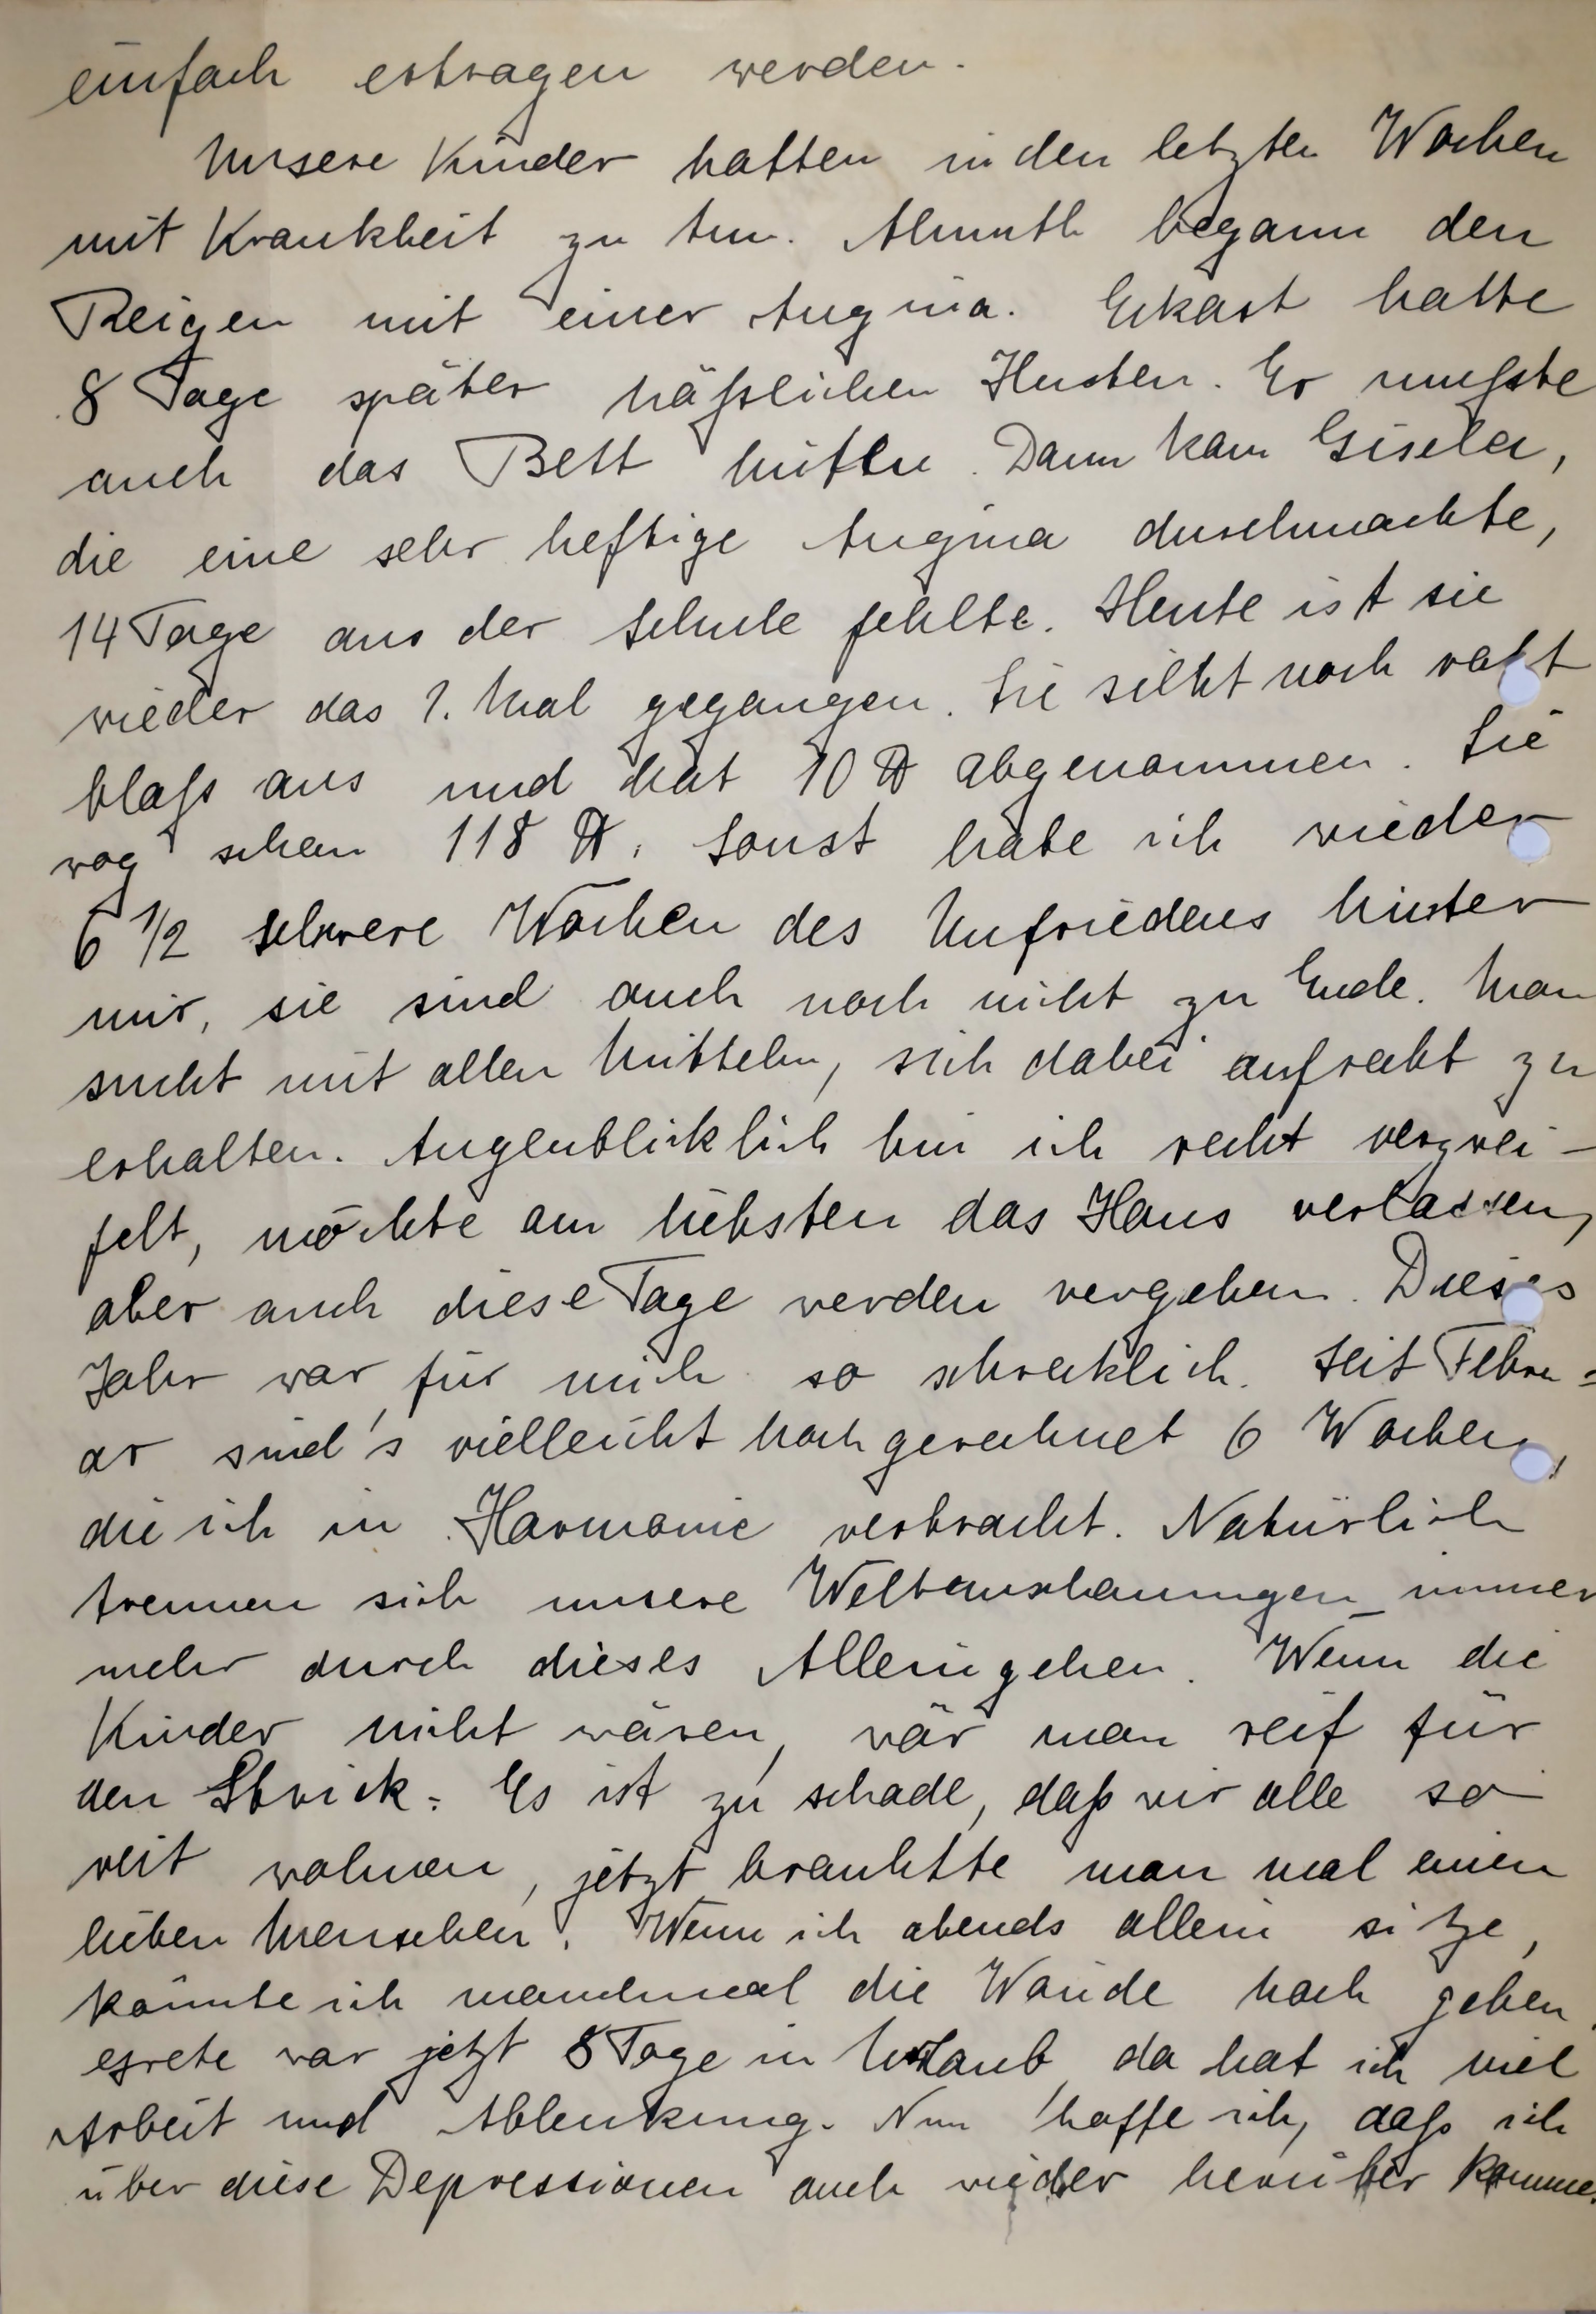 einfach ertragen werden.
Unsere Kinder hatten in den letzten Wochen
mit Krankheit zu tun. Almuth begann den
Reigen mit einer Angina. Eckart hatte
8 Tage später häßlichen Husten. Er mußte
auch das Bett hüten. Dann kam Gisela,
die eine sehr heftige Angina durchmachte,
14 Tage aus der Schule fehlte. Heute ist sie
wieder das 1. Mal gegangen. Sie sieht noch recht
blaß aus und hat 10 ℔ abgenommen. Sie
wog schon 118 ℔. Sonst habe ich wieder
6 1/2 schwere Wochen des Unfriedens hinter
mir, sie sind auch noch nicht zu Ende. Man
sucht mit allen Mitteln, sich dabei aufrecht zu
erhalten. Augenblicklich bin ich recht verzwei-
felt, möchte am liebsten das Haus verlassen,
aber auch diese Tage werden vergehen. Dieses
Jahr war für mich so schrecklich. Seit Febru=
ar sind's vielleicht hoch gerechnet 6 Wochen,
die ich in Harmonie verbracht. Natürlich
trennen sich unsere Weltanschauungen immer
mehr durch dieses Alleingehen. Wenn die
Kinder nicht wären, wär man reif für
den Strick. Es ist zu schade, daß wir alle so
weit wohnen, jetzt brauchte man mal einen
lieben Menschen. Wenn ich abends allein sitze,
könnte ich manchmal die Wände hoch gehen.
Grete war jetzt 8 Tage in Urlaub, da hat ich viel
Arbeit und Ablenkung. Nun hoffe ich, daß ich
über diese Depressionen auch wieder herüber komme.